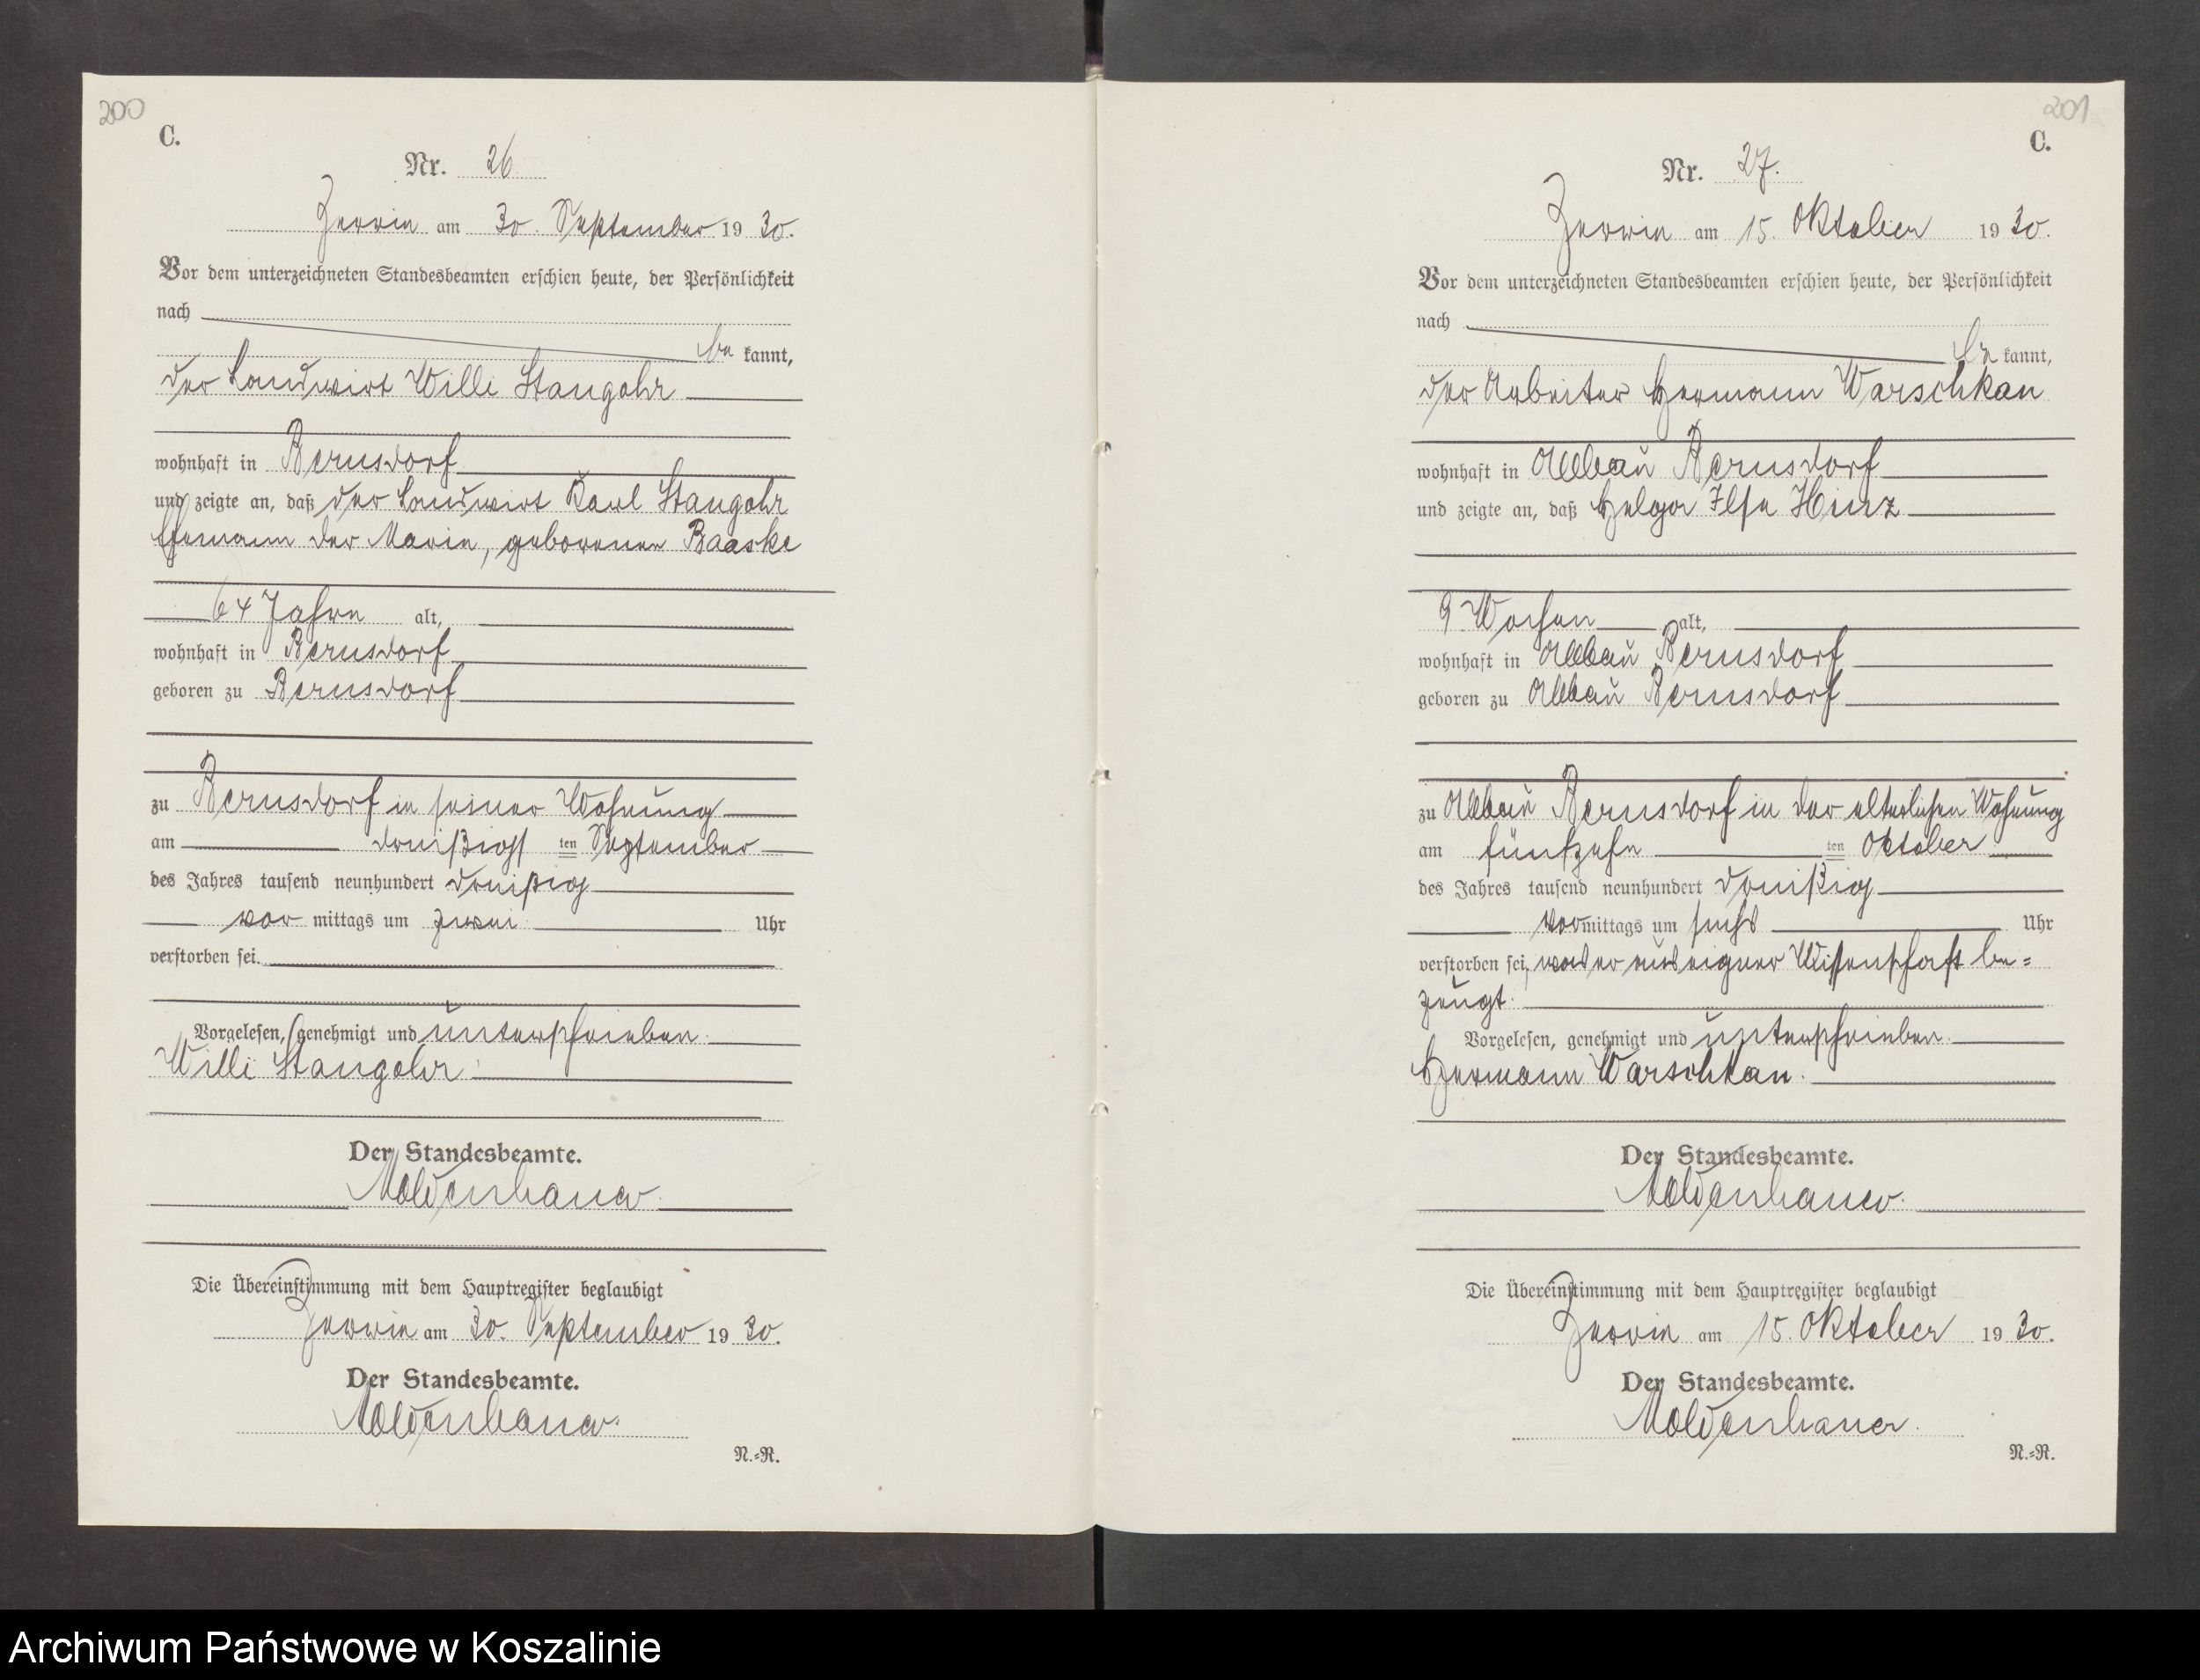 200
C.
Nr. 26
Zerrin am 30. September 19 30.
Vor dem unterzeichneten Standesbeamten erschien heute, der Persönlichkeit
nach
be kannt,
der Landwirt Willi Stangohr
wohnhaft in Bernsdorf
und zeigte an, daß der Landwirt Karl Stangohr
Ehemann der Marie, geborenen Baaske
64 Jahre alt,
wohnhaft in Bernsdorf
geboren zu Bernsdorf
zu Bernsdorf in seiner Wohnung
am dreißigst ten September
des Jahres tausend neunhundert dreißig
vor mittags um zwei Uhr
verstorben sei.
Vorgelesen, genehmigt und unterschrieben.
Willi Stangohr.
Der Standesbeamte.
Moldenhauer.
Die Übereinstimmung mit dem Hauptregister beglaubigt
Zerrin am 30. September 19 30.
Der Standesbeamte.
Moldenhauer.
N.=R.
201
C.
Nr. 27.
Zerrin am 15. Oktober 19 30.
Vor dem unterzeichneten Standesbeamten erschien heute, der Persönlichkeit
nach
be kannt,
der Arbeiter Hermann Warschkau
wohnhaft in Abbau Bernsdorf
und zeigte an, daß Helga Ilse Hinz
9 Wochen alt,
wohnhaft in Abbau Bernsdorf
geboren zu Abbau Bernsdorf
zu Abbau Bernsdorf in der elterlichen Wohnung
am fünfzehn ten Oktober
des Jahres tausend neunhundert dreißig
vor mittags um sechs Uhr
verstorben sei, was er aus eigner Wissenschaft be=
zeugt.
Vorgelesen, genehmigt und unterschrieben.
Hermann Warschkau.
Der Standesbeamte.
Moldenhauer.
Die Übereinstimmung mit dem Hauptregister beglaubigt
Zerrin am 15. Oktober 19 30.
Der Standesbeamte.
Moldenhauer.
N.=R.
Archiwum Państwowe w Koszalinie